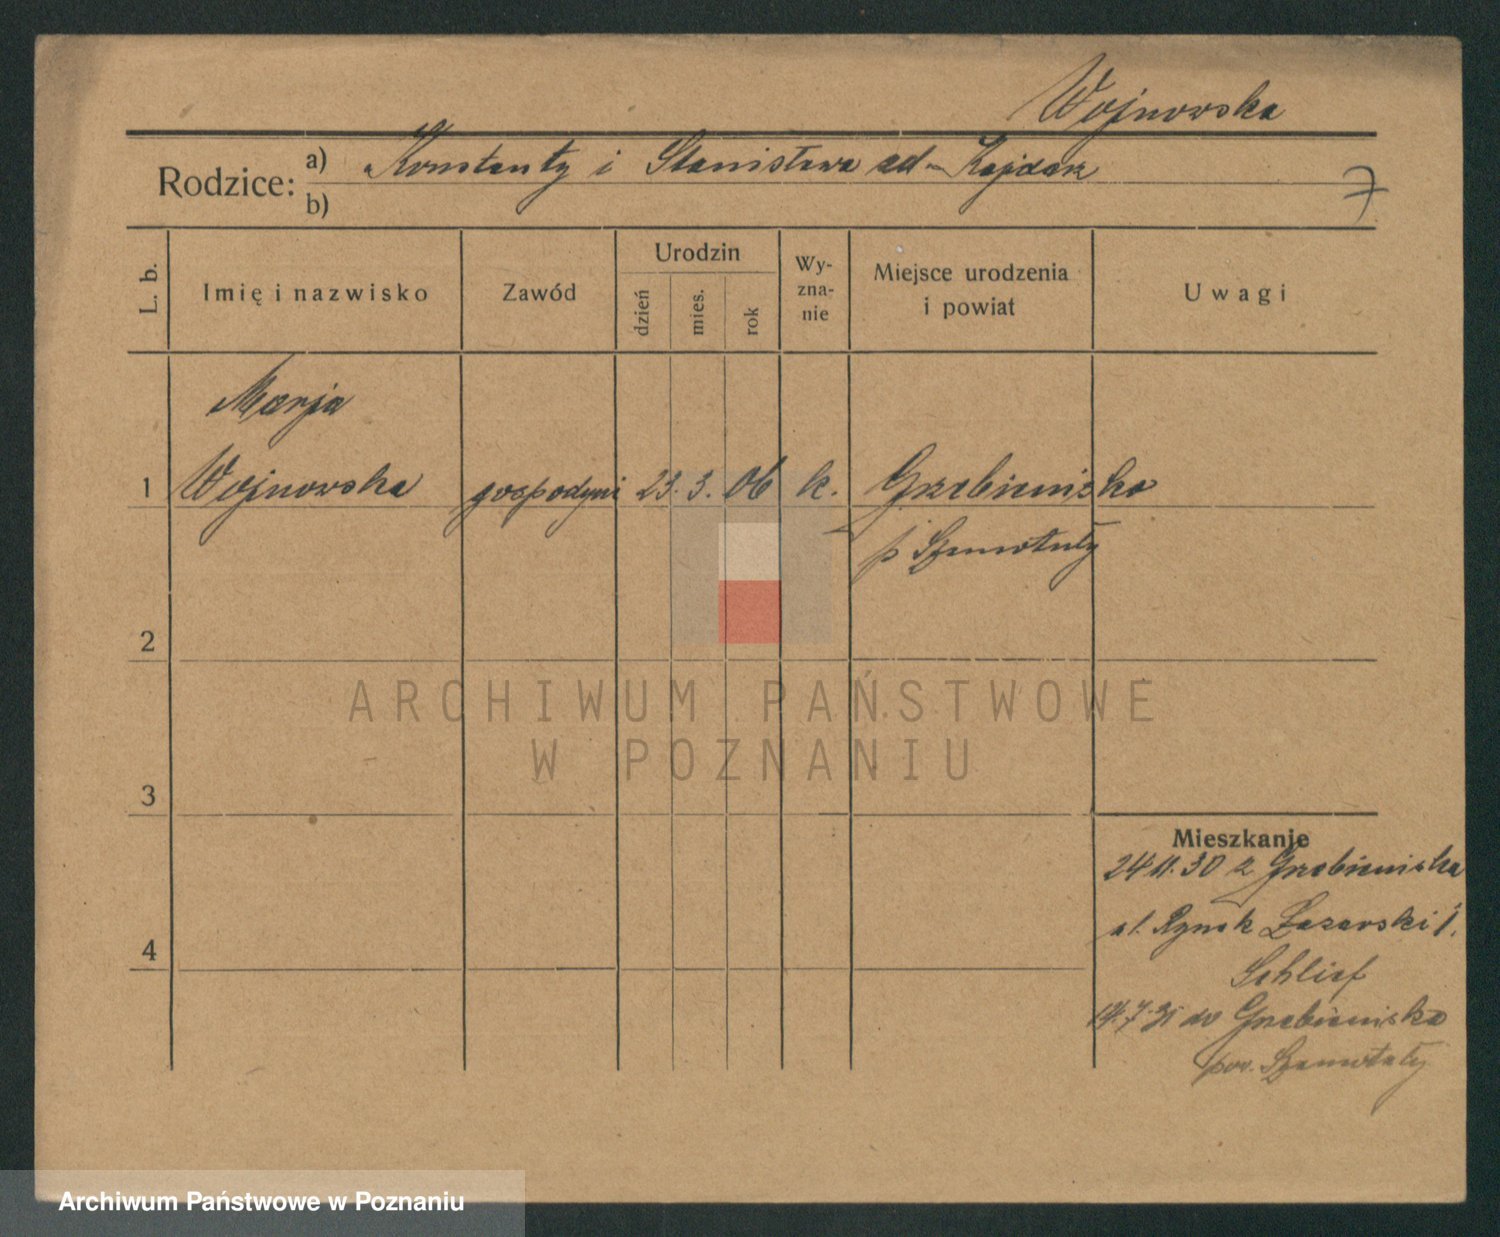 Wojnowska
Rodzice: a) Konstanty i Stanisława zd. Kajdan
b)
7
L. b.
Imię i nazwisko
Zawód
Urodzin
dzień
mies.
rok
Wy-
zna-
nie
Miejsce urodzenia
i powiat
Uwagi
Marja
1 Wojnowska gospodyni 23. 3. 06 k. Grzebienisko
p. Szamotuły
2
3
4
ARCHIWUM PAŃSTWOWE
W POZNANIU
Mieszkanie
24.11.30 z Grzebieniska
Rynek Łazarski 1.
Schlief
14.7.31 do Grzebienisko
pow. Szamotuły
Archiwum Państwowe w Poznaniu